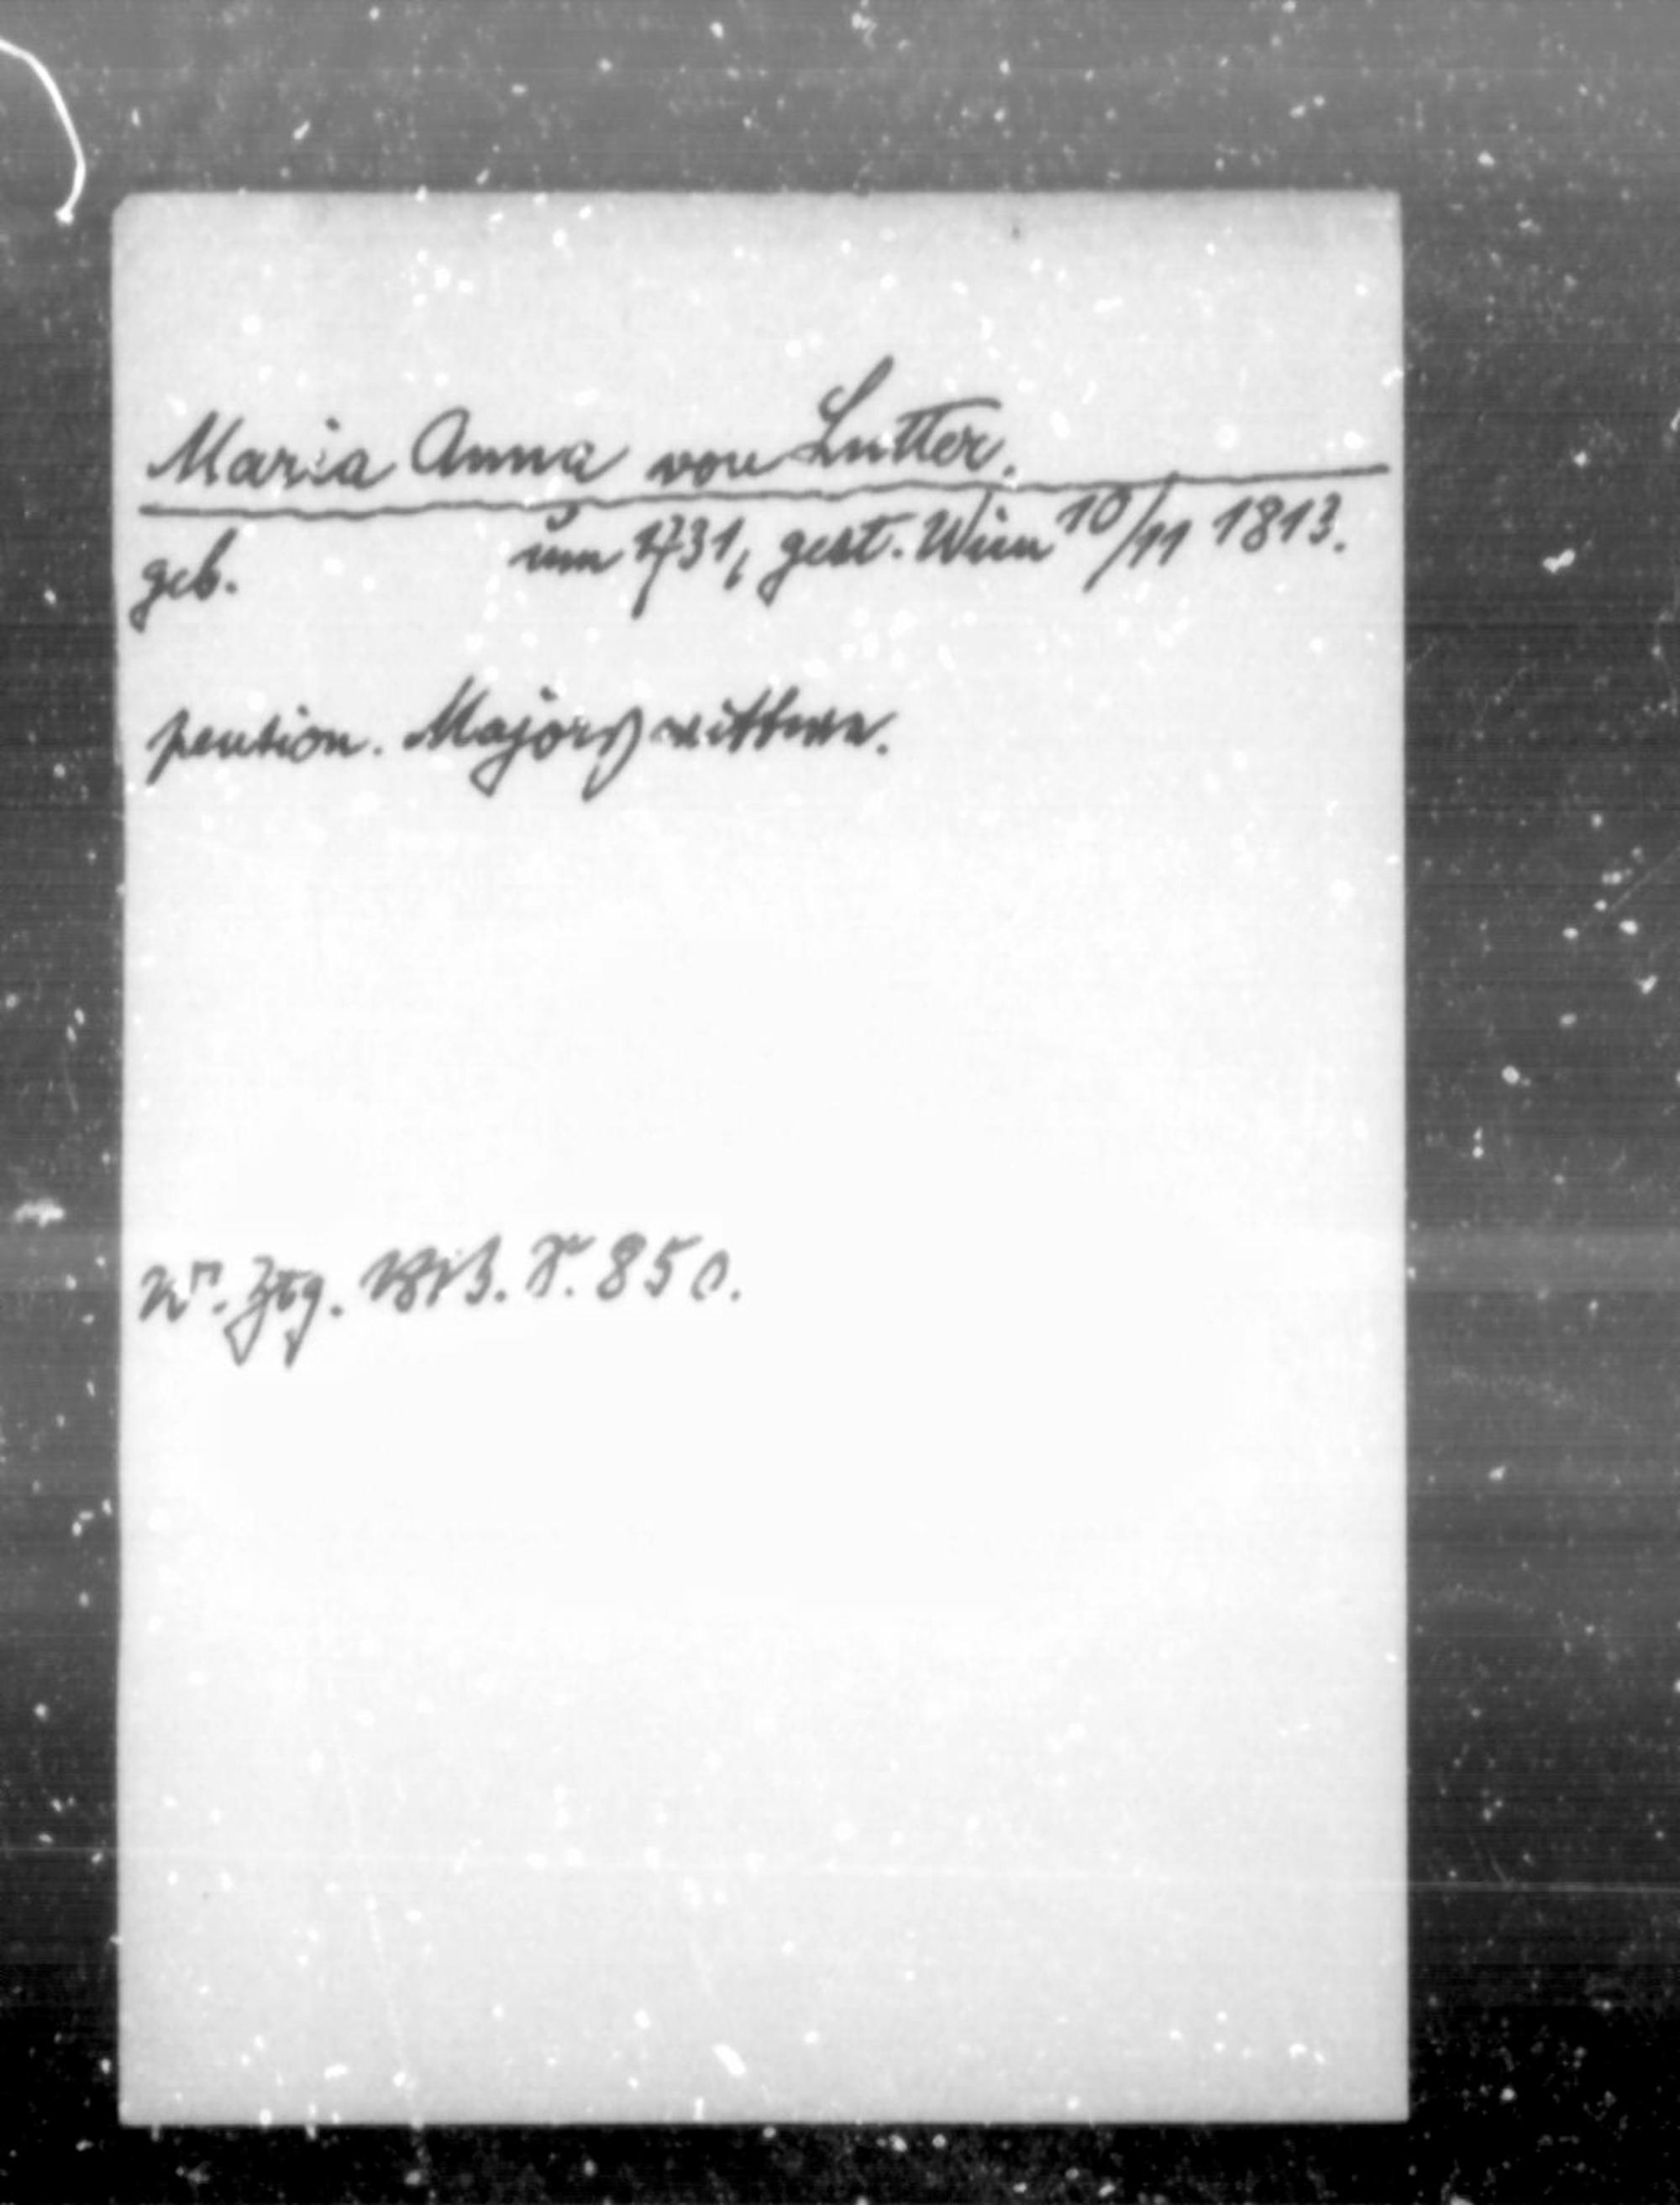 Maria Anna von Lutter.
geb. um 1731, gest. Wien 10/11 1813.
pension. Majorswittwe.
Wr. Ztg. 1813. S. 850.